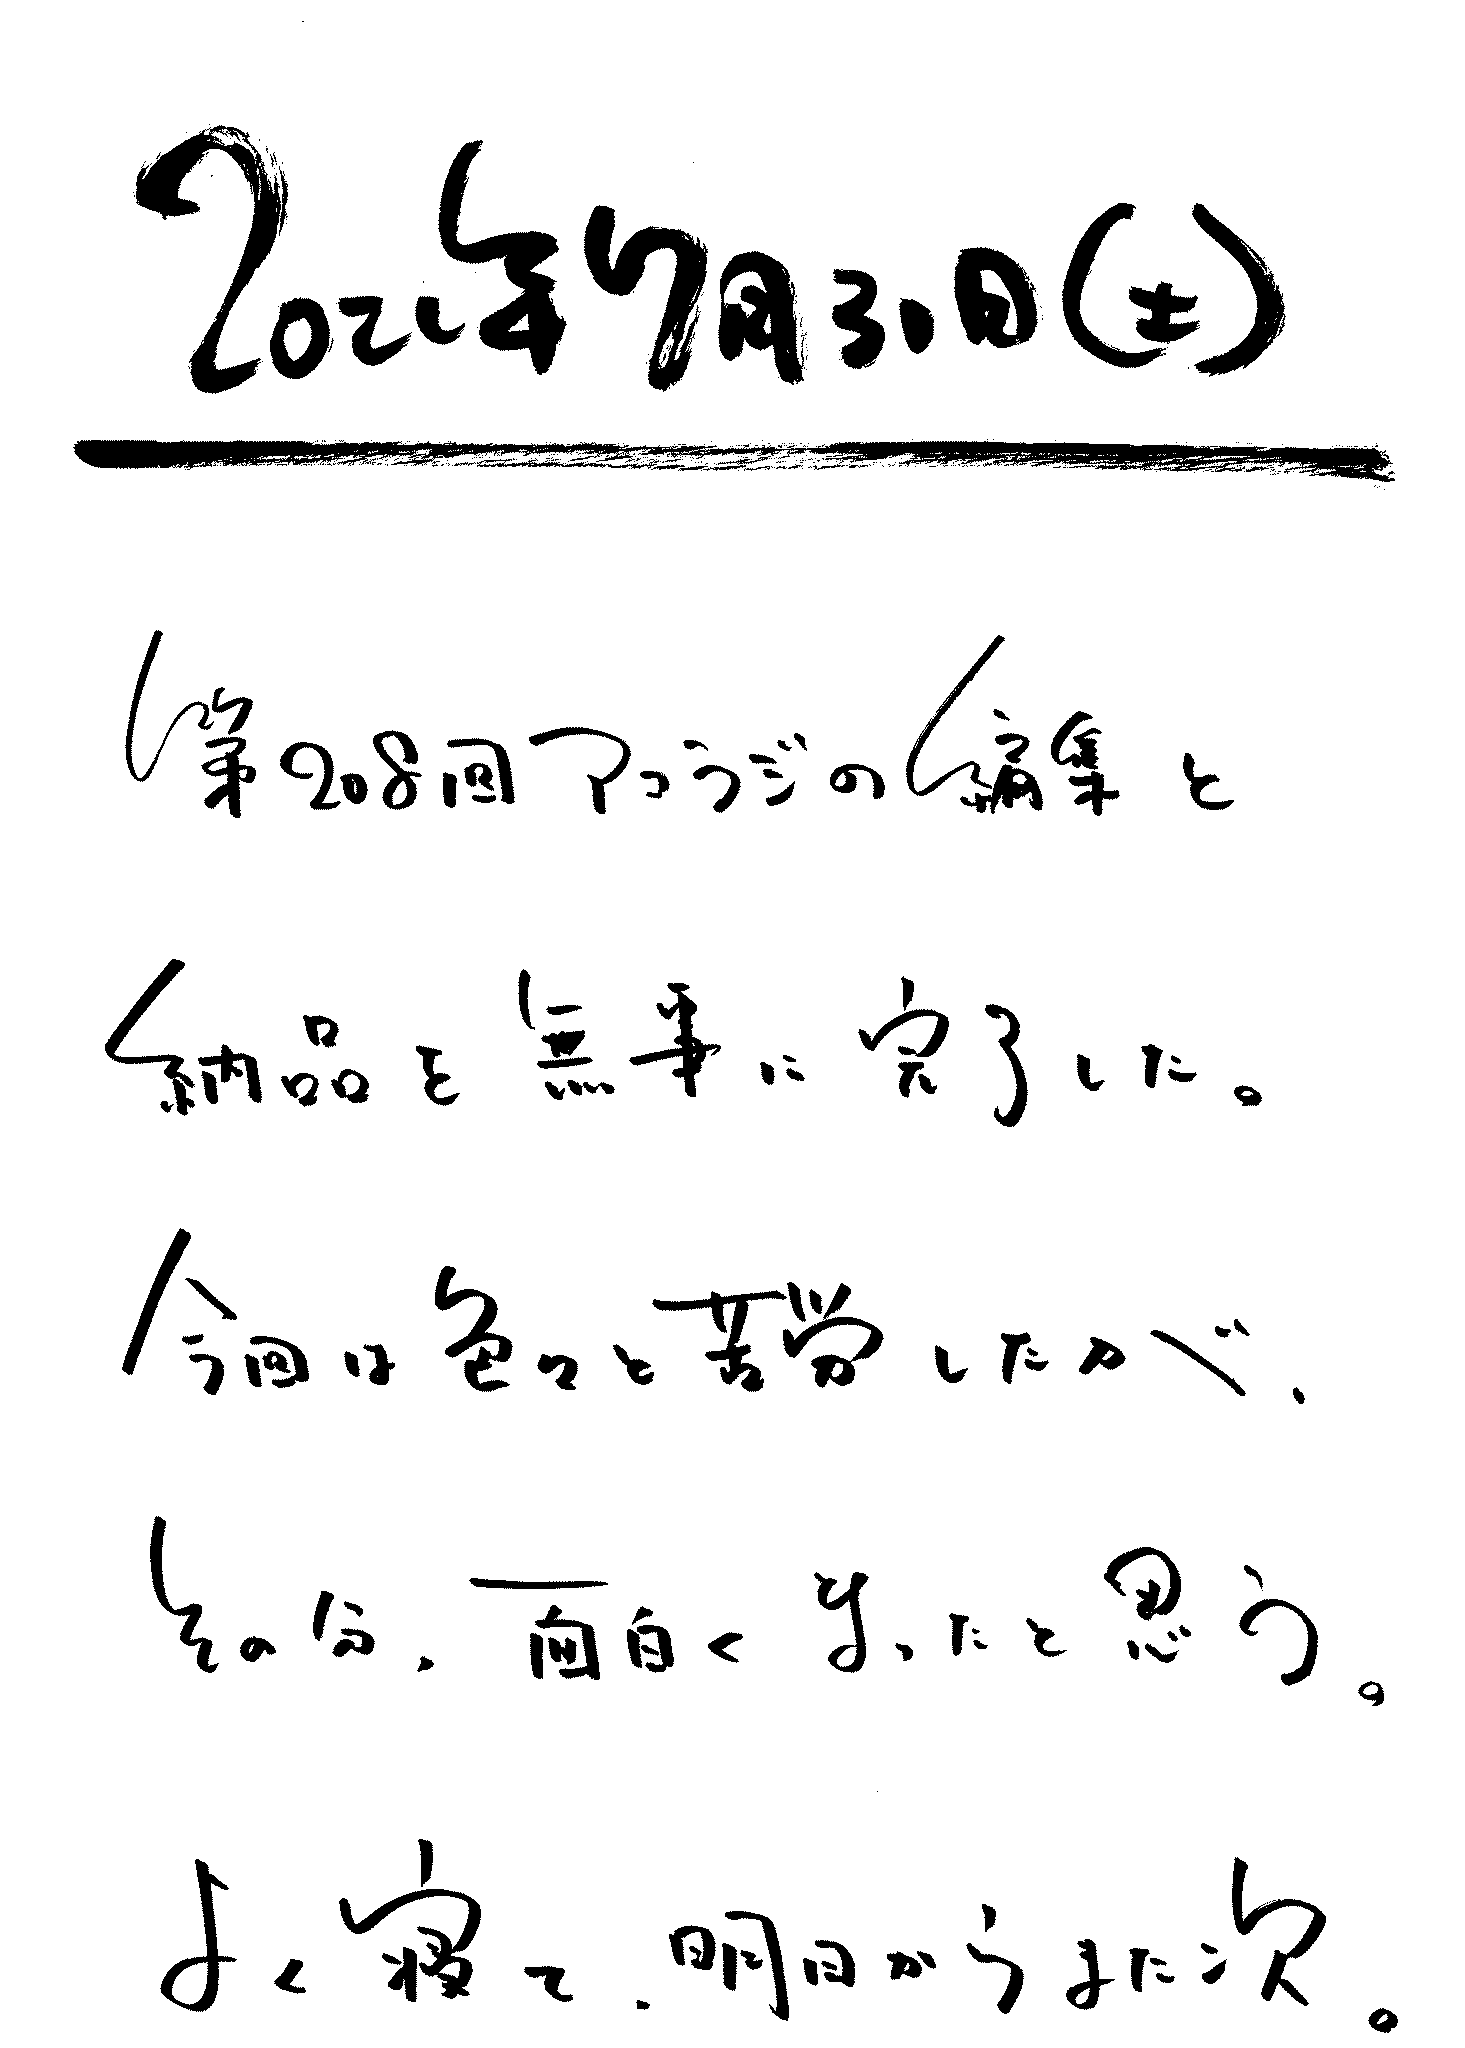 2021年7月31日(土)
第208回アコラジの編集と
納品を無事に完了した。
今回は色々と苦労したが、
その分、面白くなったと思う。
よく寝て、明日からまた次。